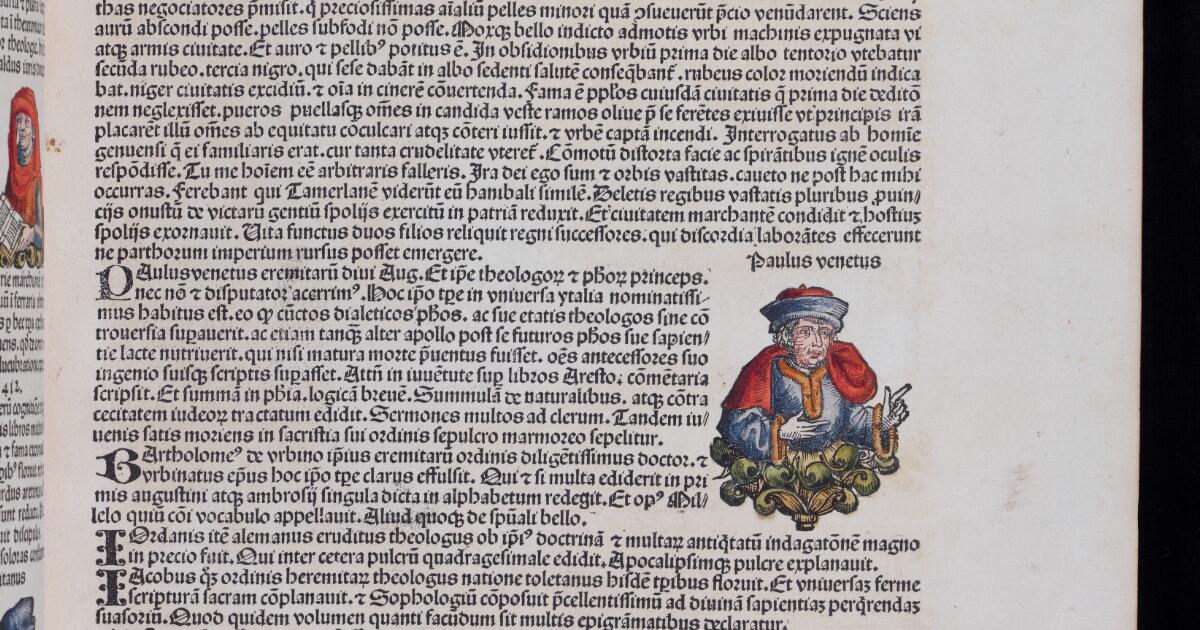 thas negociatores p̄misit. q̄ preciosissimas aīaliū pelles minori quā ↄsueuerūt p̄cio venūdarent. Sciens
aurū abscondi posse. pelles subfodi nō posse. Moxqꝫ bello indicto admotis vrbi machinis expugnata vi
atqꝫ armis ciuitate. Et auro ⁊ pellibꝰ potitus ē. In obsidionibus vrbiū prima die albo tentorio vtebatur
secūda rubeo. tercia nigro. qui sese dabāt in albo sedenti salutē conseq̄banť. rubeus color moriendū indica
bat. niger ciuitatis excidiū. ⁊ oīa in cinerē cōuertenda. Fama ē pp̄łos cuiusdā ciuitatis q̄ prima die deditō
nem neglexisset. pueros puellasqꝫ om̄es in candida veste ramos oliue p̄ se ferētes exiuisse vt principis irā
placarēt illū om̄es ab equitatu cōculcari atqꝫ cōteri iussit. ⁊ vrbē captā incendi. Interrogatus ab homīe
genuensi q̄ ei familiaris erat. cur tanta crudelitate vtereť. Cōmotū distorta facie ac spirātibus ignē oculis
respōdisse. Tu me hoīem eē arbitraris falleris. Ira dei ego sum ⁊ orbis vastitas. caueto ne post hac mihi
occurras. Ferebant qui Tamerlanē viderūt eū hanibali similē. Deletis regibus vastatis pluribus ꝓuin/
cijs onustū de victarū gentiū spolijs exercitū in patriā reduxit. Et ciuitatem marchantē condidit ⁊ hostiuꝫ
spolijs exornauit. Uita functus duos filios reliquit regni successores. qui discordia laborātes effecerunt
ne parthorum imperium rursus posset emergere.
Paulus venetus
PAulus venetus eremitarū diui Aug. Et ip̄e theologoꝝ ⁊ ph̄oꝝ princeps.
nec nō ⁊ disputator acerrimꝰ. Hoc ip̄o tp̄e in vniuersa ytalia nominatissi-
mus habitus est. eo ꝙ cūctos dialeticos ph̄os. ac sue etatis theologos sine cō
trouersia suꝑauerit. ac etiam tanqꝫ alter apollo post se futuros ph̄os sue sapien-
tie lacte nutriuerit. qui nisi matura morte p̄uentus fuisset. oēs antecessores suo
ingenio suisqꝫ scriptis suꝑasset. Attn̄ in iuuētute suꝑ libros Aresto. cōmētaria
scripsit. Et summā in ph̄ia. logicā breuē. Summulā de naturalibus. atqꝫ cōtra
cecitatem iudeoꝝ tractatum edidit. Sermones multos ad clerum. Tandem iu/
uenis satis moriens in sacristia sui ordinis sepulcro marmoreo sepelitur.
BArtholomeꝰ de vrbino ip̄ius eremitarū ordinis diligētissimus doctor. ⁊
vrbinatus ep̄us hoc ip̄o tp̄e clarus effulsit. Qui ⁊ si multa ediderit in pri
mis augustini atqꝫ ambrosij singula dicta in alphabetum redegit. Et opꝰ Mil/
lelo quiū cōi vocabulo appellauit. Aliud quoqꝫ de sp̄uali bello.
IOrdanis itē alemanus eruditus theologus ob ip̄iꝰ doctrinā ⁊ multaꝝ antiq̄tatū indagatōnē magno
in precio fuit. Qui inter cetera pulcrū quadragesimale edidit. Apocalipsimqꝫ pulcre explanauit.
IAcobus qꝫ ordinis heremitaꝝ theologus natione toletanus hisdē tp̄ibus floruit. Et vniuersaꝫ ferme
scripturā sacram cōplanauit. ⁊ Sophologiū cōposuit p̄cellentissimū ad diuinā sapientiaꝫ perq̄rendaꝫ
suasoriū. Quod quidem volumen quanti facūdum sit multis epigrāmatibus declaratur.